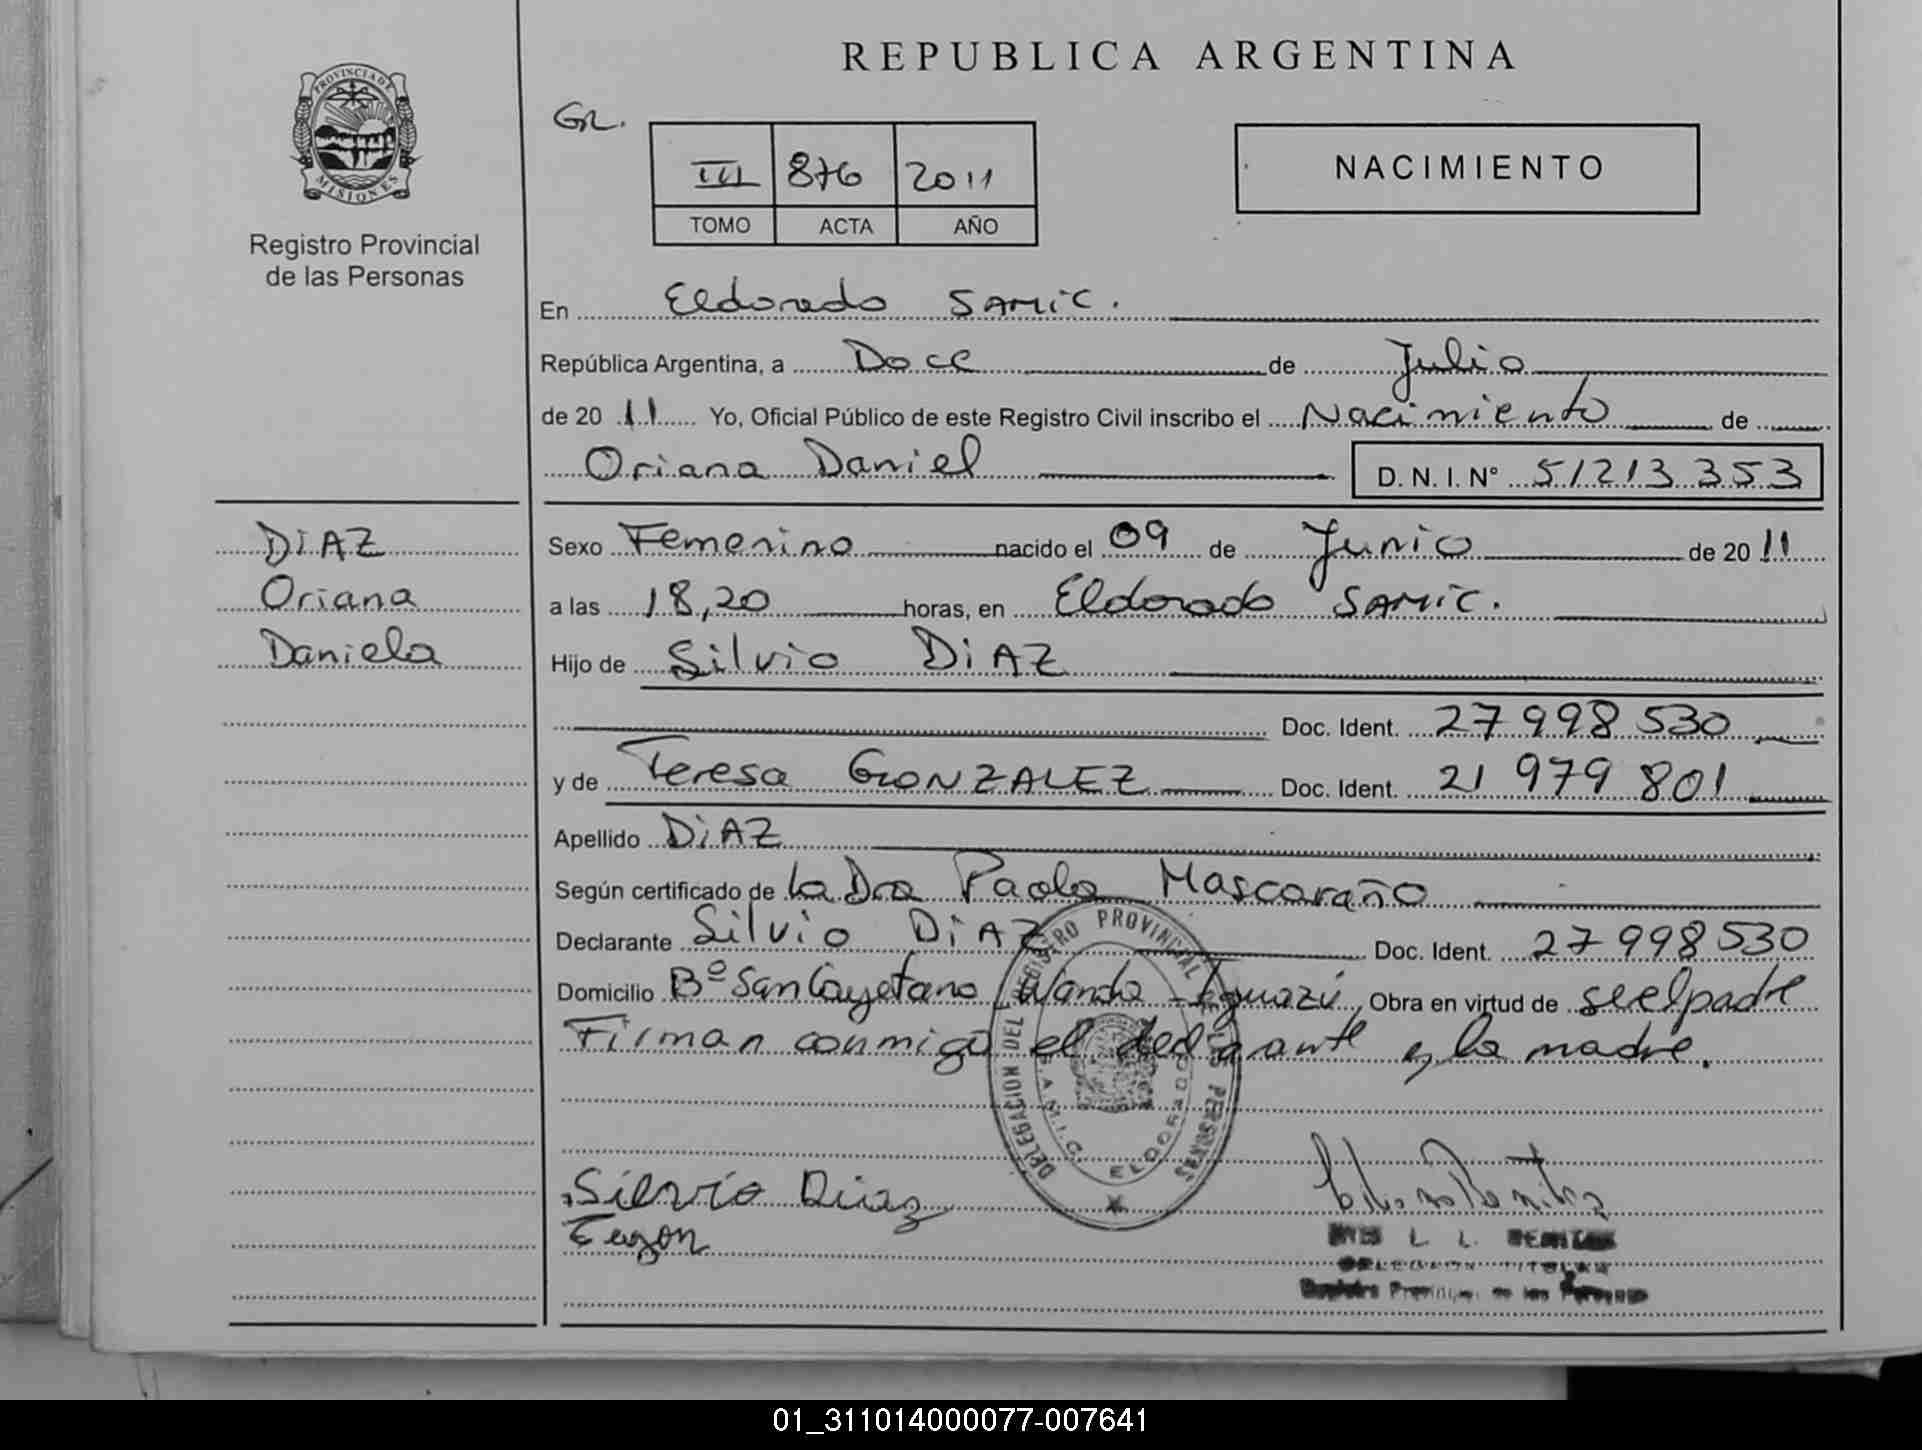 REPUBLICA ARGENTINA
PROVINCIA DE MISIONES
Registro Provincial
de las Personas
GR.
III 876 2011
TOMO ACTA AÑO
NACIMIENTO
En Eldorado SAMIC.
República Argentina, a Doce de Julio
de 20 11 Yo, Oficial Público de este Registro Civil inscribo el Nacimiento de
Oriana Daniel D. N. I. Nº 51213353
DIAZ
Oriana
Daniela
Sexo Femenino nacido el 09 de Junio de 20 11
a las 18,20 horas, en Eldorado SAMIC.
Hijo de Silvio DIAZ
Doc. Ident. 27998530
y de Teresa GONZALEZ Doc. Ident. 21 979 801
Apellido DIAZ
Según certificado de la Dra Paola Mascaraño
Declarante Silvio DIAZ Doc. Ident. 27998530
Domicilio Bº San Cayetano Wanda - Iguazú Obra en virtud de se el padre
Firman conmigo el declarante y la madre.
DELEGACION DEL REGISTRO PROVINCIAL DE LAS PERSONAS
S.A.M.I.C. ELDORADO
Silvio Diaz
L. L.
DELEGADA TITULAR
Registro Provincial de las Personas
01_311014000077-007641